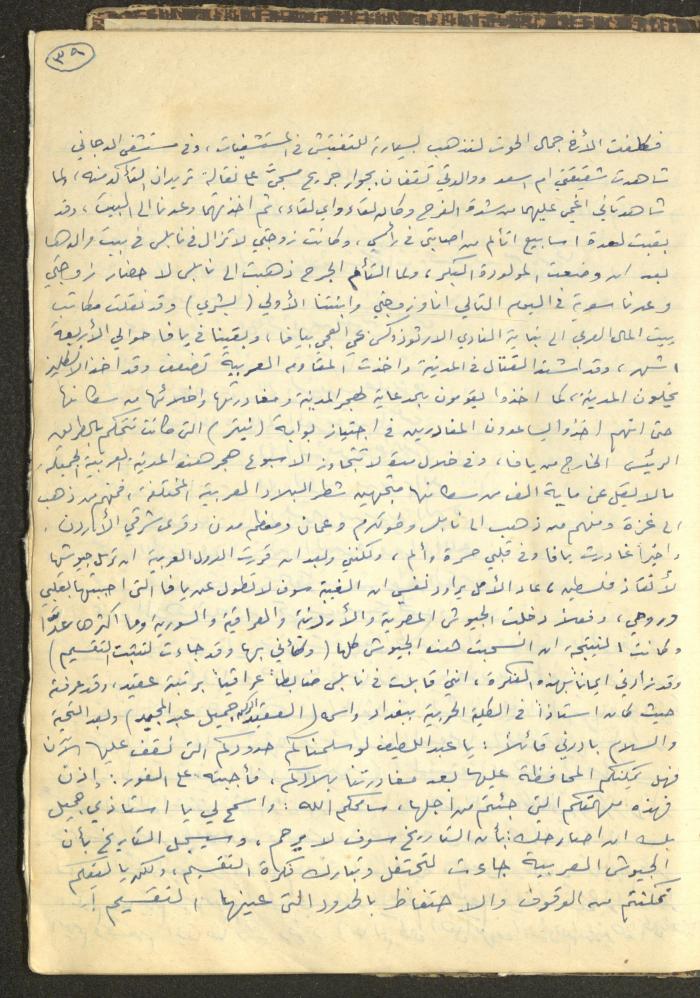 ٣٩
فكلفت الأخ جمال الحوت لنذهب بسيارته للتفتيش في المستشفيات، وفي مستشفى الدجاني
شاهدت شقيقتي ام اسعد ووالدتي تقفان بجوار جريح مسجىً على نقالة تريدان التأكد منه، ولما
شاهدتاني اغمي عليهما من شدة الفرح وكان لقاء واي لقاء، ثم اخذتهما وعدنا الى البيت، وقد
بقيت لعدة اسابيع اتألم من اصابتي في رأسي، وكانت زوجتي لا تزال في نابلس في بيت والدها
بعد ان وضعت المولودة البكر، ولما التأم الجرح ذهبت الى نابلس لاحضار زوجتي
وعدنا سوية في اليوم التالي انا وزوجتي وابنتنا الأولى (بشرى) وقد نقلت مكاتب
بيت المال العربي الى بناية النادي الارثوذكسي في العجمي بيافا، وبقينا في يافا حوالي الأربعة
اشهر، وقد اشتد القتال في المدينة واخذت المقاومه العربية تضعف وقد اخذ الانكليز
يخلون المدينة، كما اخذوا يقومون بالدعاية لهجر المدينة ومغادرتها واخلائها من سكانها
حتى انهم اخذوا يساعدون المغادرين في اجتياز بوابة (نيتر) التي كانت تتحكم بالطريق
الرئيسي الخارج من يافا، وفي خلال مدة لا تتجاوز الاسبوع هجر هذه المدينة العربية الجميلة
ما لا يقل عن ماية الف من سكانها متجهين شطر البلاد العربية المختلفة، فمنهم من ذهب
الى غزة ومنهم من ذهب الى نابلس وطولكرم وعمان ومعظم مدن وقرى شرقي الأردن.
واخيراً غادرت يافا وفي قلبي حسرة وألم، ولكنني وبعد ان قررت الدول العربية ان ترسل جيوشها
لأنقاذ فلسطين، عاد الأمل يراود نفسي ان الغيبة سوف لا تطول عن يافا التي احببتها بقلبي
وروحي، وفعلاً دخلت الجيوش المصرية والأردنية والعراقية والسورية وما اكثرها عدداً
وكانت النتيجة ان انسحبت هذه الجيوش كلها (وكأني بها وقد جاءت لتثبت التقسيم)
وقد زادني ايماناً بهذه الفكرة، انني قابلت في نابلس ضابطاً عراقياً برتبة عقيد، وقد عرفته
حيث كان استاذاً في الكلية الحربية ببغداد واسمه (العقيد الركن جميل عبد المجيد) وبعد التحية
والسلام بادرني قائلاً: يا عبد اللطيف لو سلمناكم حدودكم التي نقف عليها
فهل يمكنكم المحافظة عليها بعد مغادرتنا بلادكم، فأجبته على الفور: إذن
فهذه مهمتكم التي جئتم من اجلها، سامحكم الله: واسمح لي يا استاذي جميل
بك ان اصارحك: بأن التاريخ سوف لا يرحم، وسيسجل التاريخ بأن
الجيوش العربية جاءت لتحتفل وتبارك فكرة التقسيم، ولكن يا ليتكم
تمكنتم من الوقوف والاحتفاظ بالحدود التي عينها التقسيم